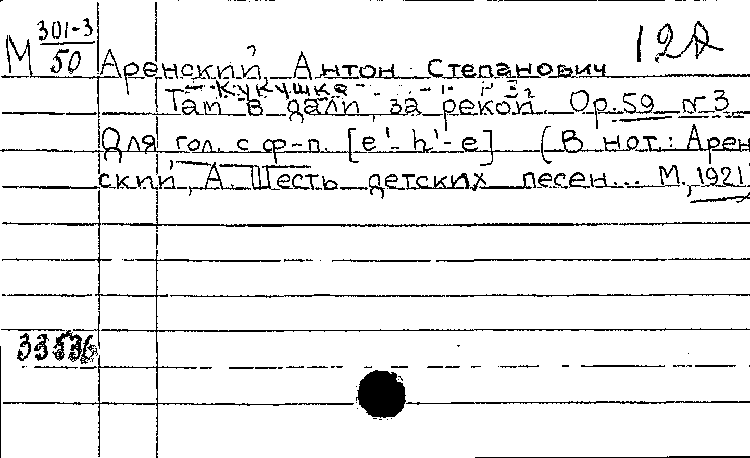 М 301-3/50
12д
Аренский, Антон Степанович
Кукушка
Там в дали, за рекой. Ор. 59 № 3
Для гол. с ф-п. [e'-h'-e] (В нот.: Арен
ский, А. Шесть детских песен... М., 1921
33536